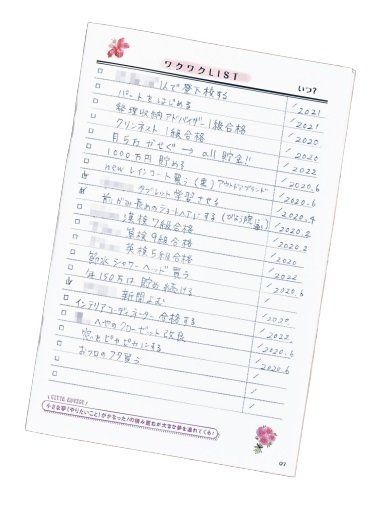 ワクワクLIST
いつ?
人で登下校する / 2021
パートをはじめる / 2021
整理収納アドバイザー1級合格 / 2020
クリンネスト1級合格 / 2020
月5万かせぐ → all貯金!! / 2022
1000万円貯める / 2020.6
newレインコート買う(黒)アウトドアブランド / 2020.6
タブレット学習させる / 2020.4
前下がり長めのショートヘアにする
漢検7級合格 / 2020.2
算検9級合格 / 2020
英検5級合格 / 2022
節水シャワーヘッド買う / 2020.6
年150万は貯め続ける /
新聞よむ / 2020
インテリアコーディネーター合格する / 2022
へやのクローゼット改良 / 2020.6
窓をピカピカにする / 2020.6
おフロのフタ買う
小さな夢(やりたいこと)がかなった!の積み重ねが大きな夢を連れてくる!